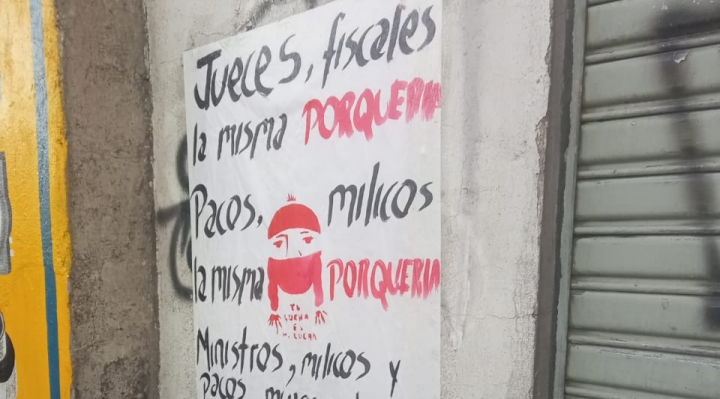 Jueces, fiscales
la misma PORQUERIA
Pacos, milicos
la misma PORQUERIA
TU
LUCHA
ES
MI LUCHA
Ministros, milicos y
pacos